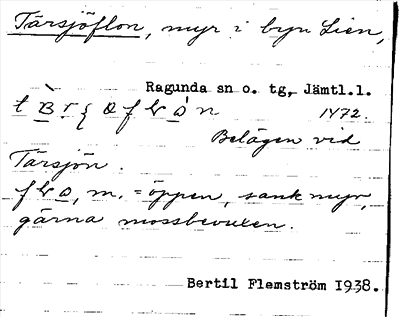 Tärsjöflon, myr i byn Lien,
Ragunda sn o. tg, Jämtl.l.
1472.
Belägen vid
Tärsjön.
m. = öppen, sank myr,
gärna mossbevuxen.
Bertil Flemström 1938.